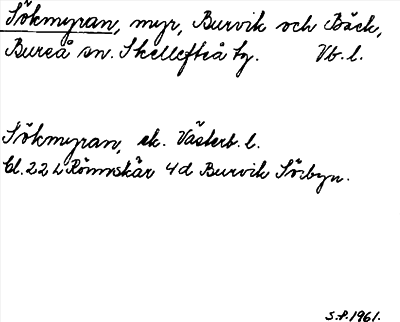 Sökmyran, myr, Burvik och Bäck,
Bureå sn. Skellefteå tg. Vb. l.
Sökmyran, ek. Västerb. l.
Bl. 22 L Rönnskär 4d Burvik Sörbyn.
S.P. 1961.